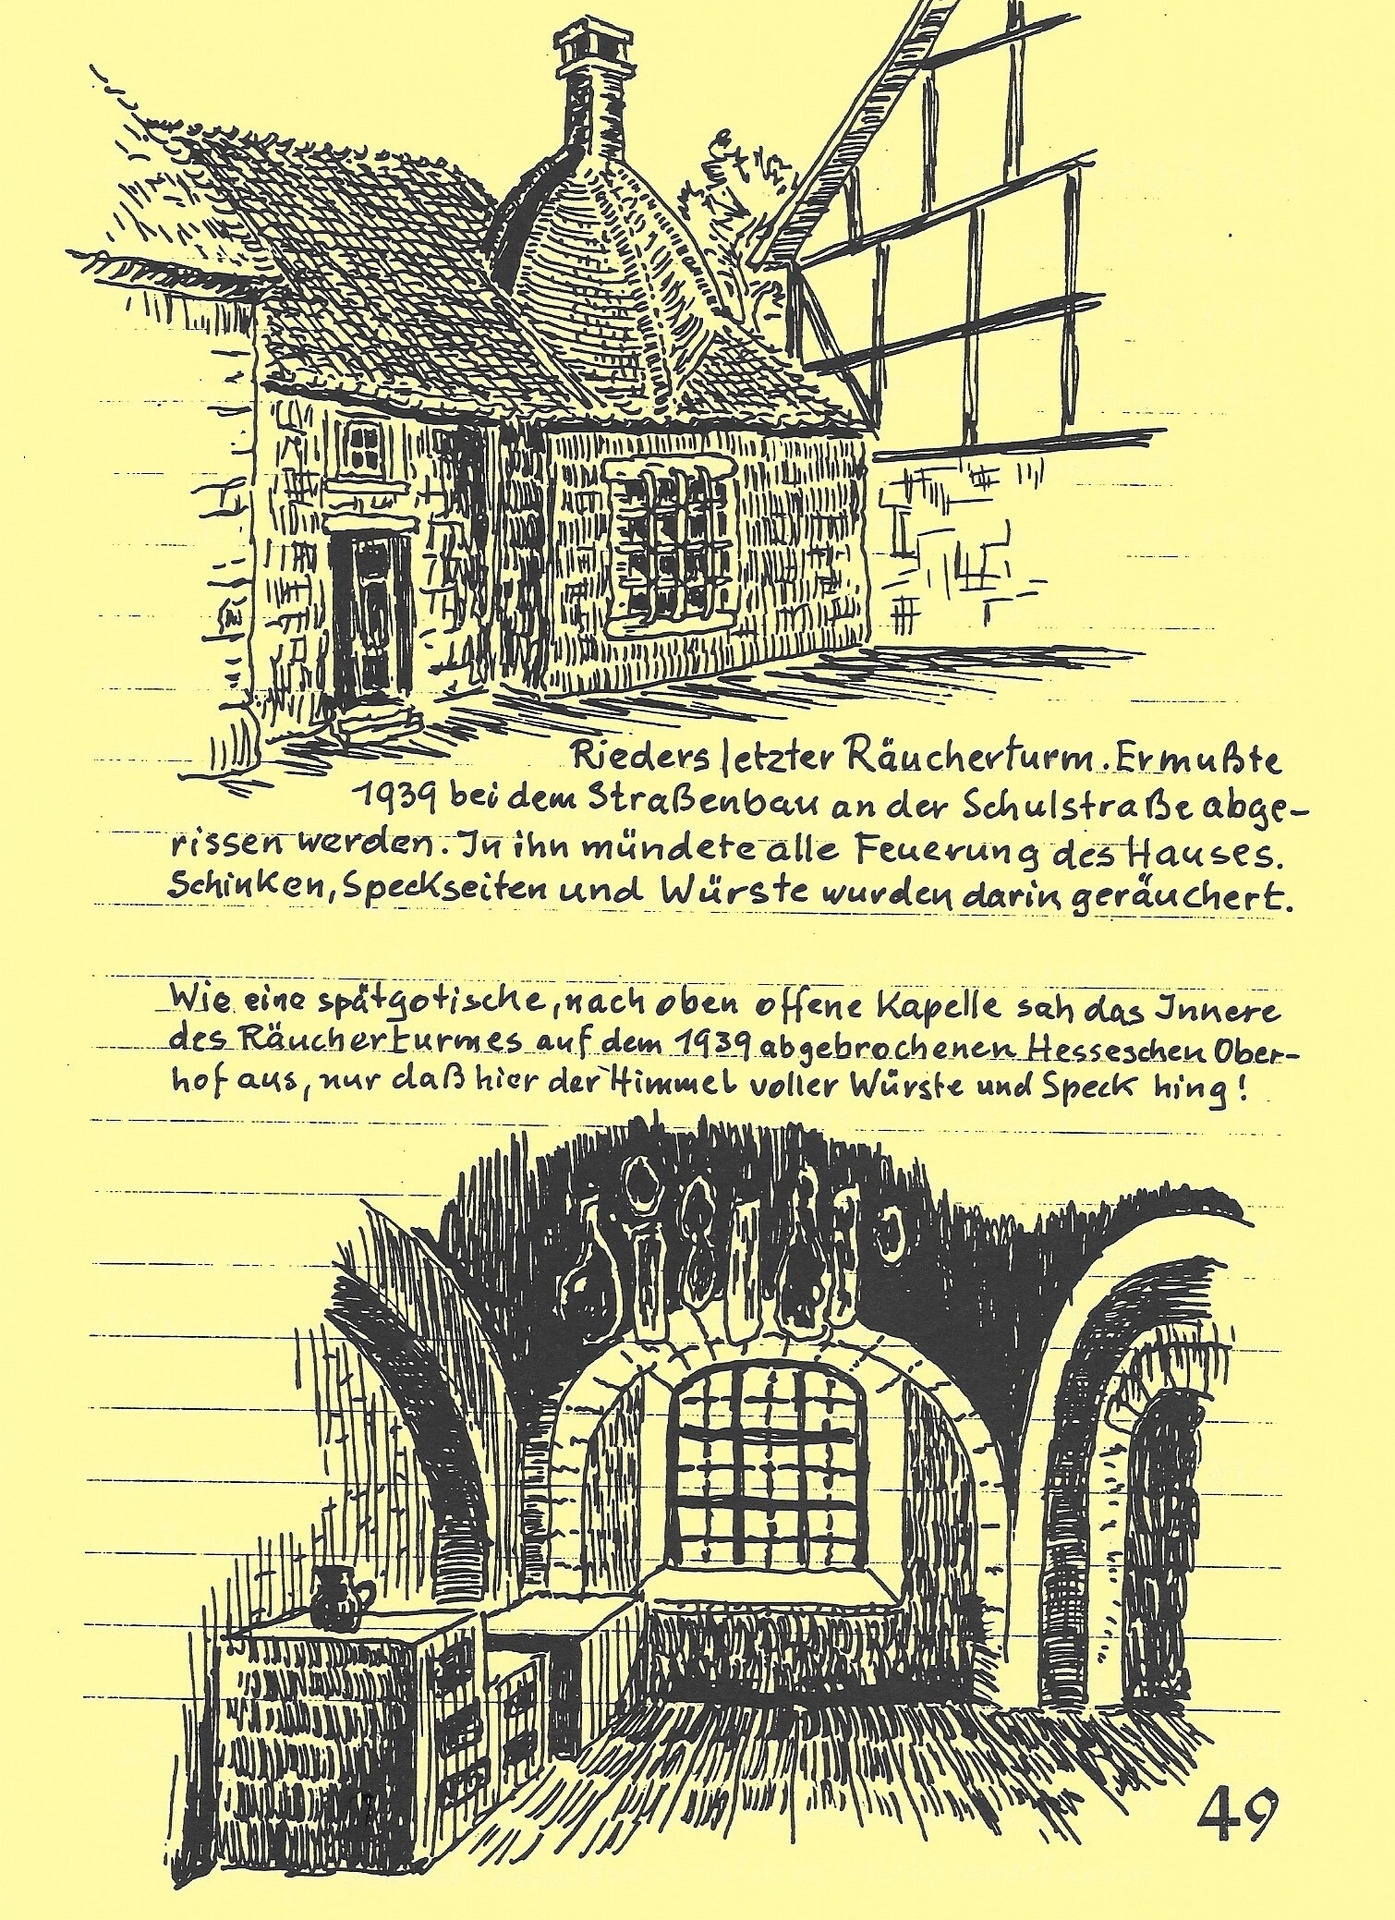 Rieders letzter Räucherturm. Er mußte
1939 bei dem Straßenbau an der Schulstraße abge-
rissen werden. In ihn mündete alle Feuerung des Hauses.
Schinken, Speckseiten und Würste wurden darin geräuchert.
Wie eine spätgotische, nach oben offene Kapelle sah das Innere
des Räucherturmes auf dem 1939 abgebrochenen Hesseschen Ober-
hof aus, nur daß hier der Himmel voller Würste und Speck hing!
49